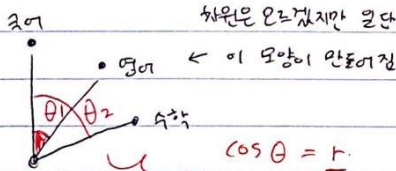 국어
차원은 모르겠지만 일단
영어 ← 이 모양이 만들어짐
θ1 θ2
수학
cos θ = r.